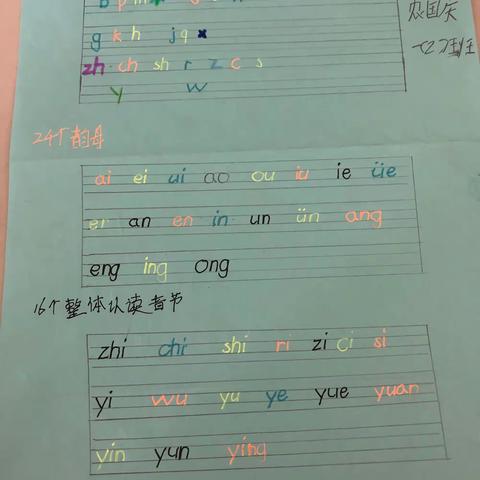 b p m
g k h j q x
zh ch sh r z c s
y w
24个韵母
ai ei ui ao ou iu ie üe
er an en in un ün ang
eng ing ong
16个整体认读音节
zhi chi shi ri zi ci si
yi wu yu ye yue yuan
yin yun ying